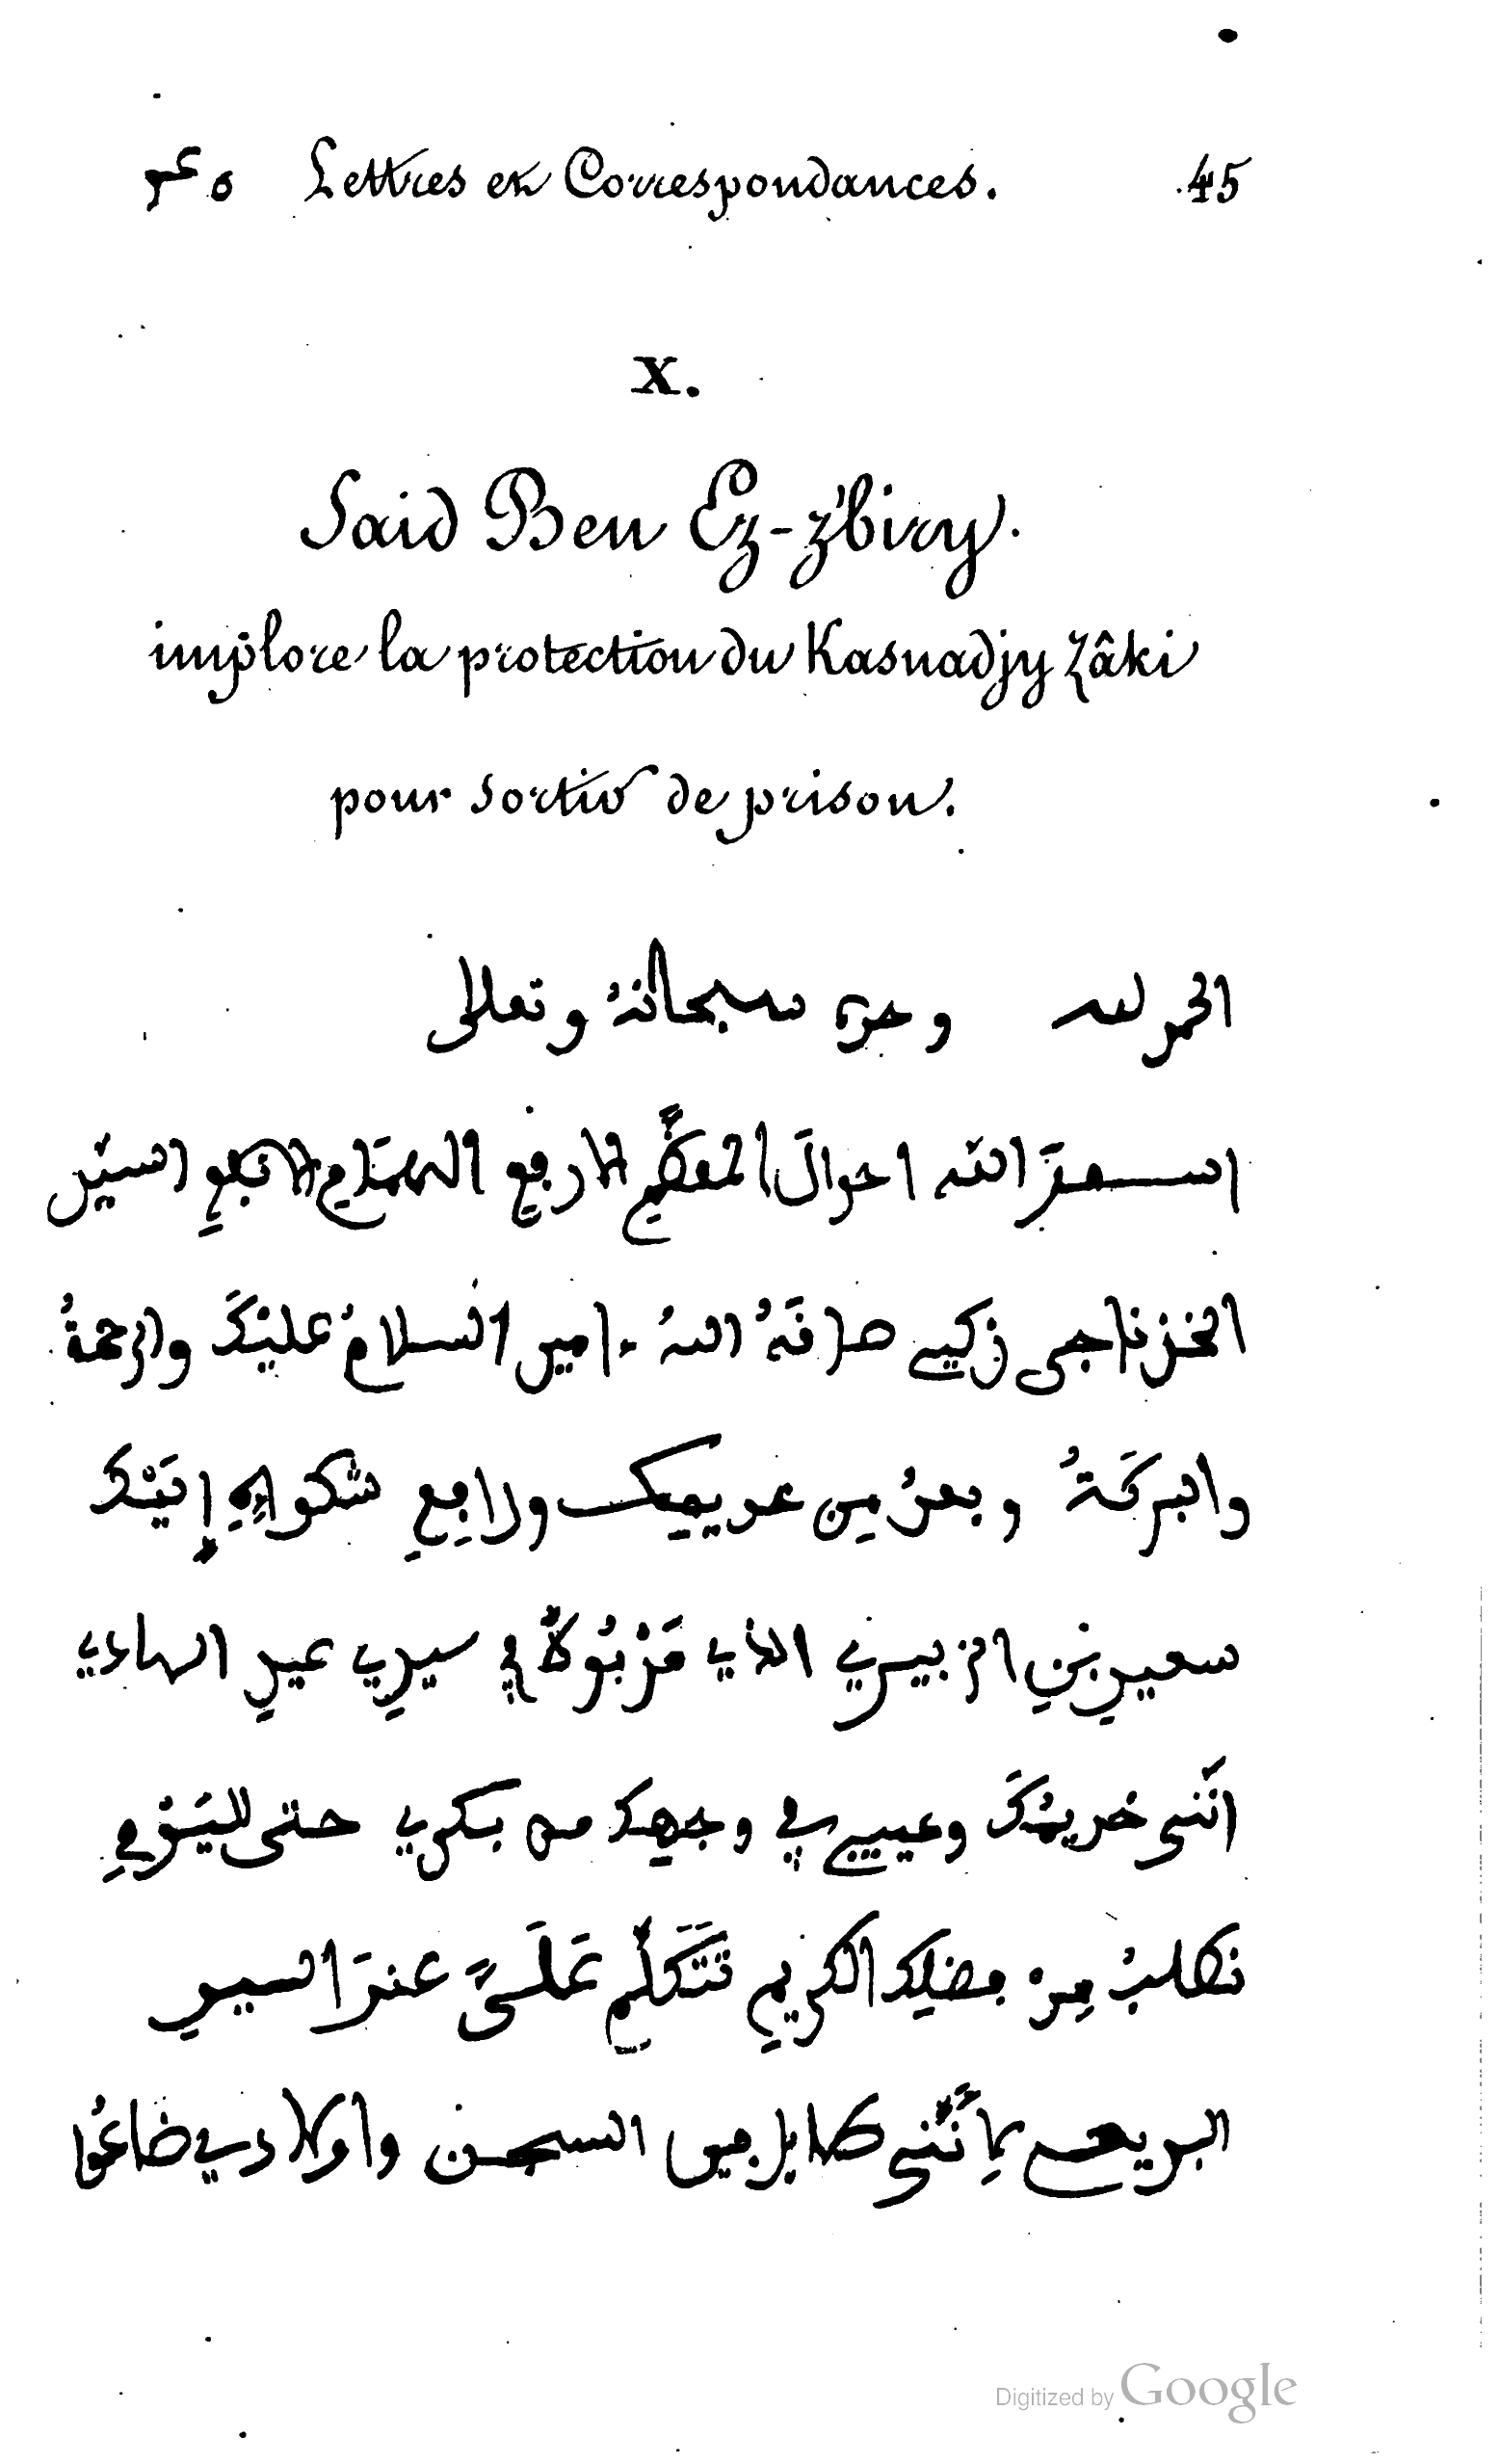 ٤٥ Lettres et Correspondances. 45
X.
Said Ben Ez-z'biry.
implore la protection du Kasnadjy Zâki
pour sortir de prison.
الحمد لله وحده سبحانهُ وتعلالى
اسـعـدَ الله احوالَ المعظّمِ الارفِعِ الهمَامِ الانجعِ السيّد
الخزناجى زكيى صاڢَهُ اللهُ ءامين السلامُ عليْكَ والرحمةُ
والبركَةُ وبعدُ مِن خديمِك وراڢِعِ شكواهِ إليْكَ
سعيدِ بْنِ الزبيرِي الذي مَرْبُوطٌ ڢي سيدِي عبدِ الهادي
انَّنى خديمُكَ وعيبى ڢي وجهِك من بكرِي حتى لليَوْمِ
نطلبُ مِنْ ڢضلِك الكريمِ تتَكلّمِ عَلَىَّ عندَ السيدِ
البديع بِأَنَّنى طايل ڢِي السجن واولادي ضاعُوا
Digitized by Google